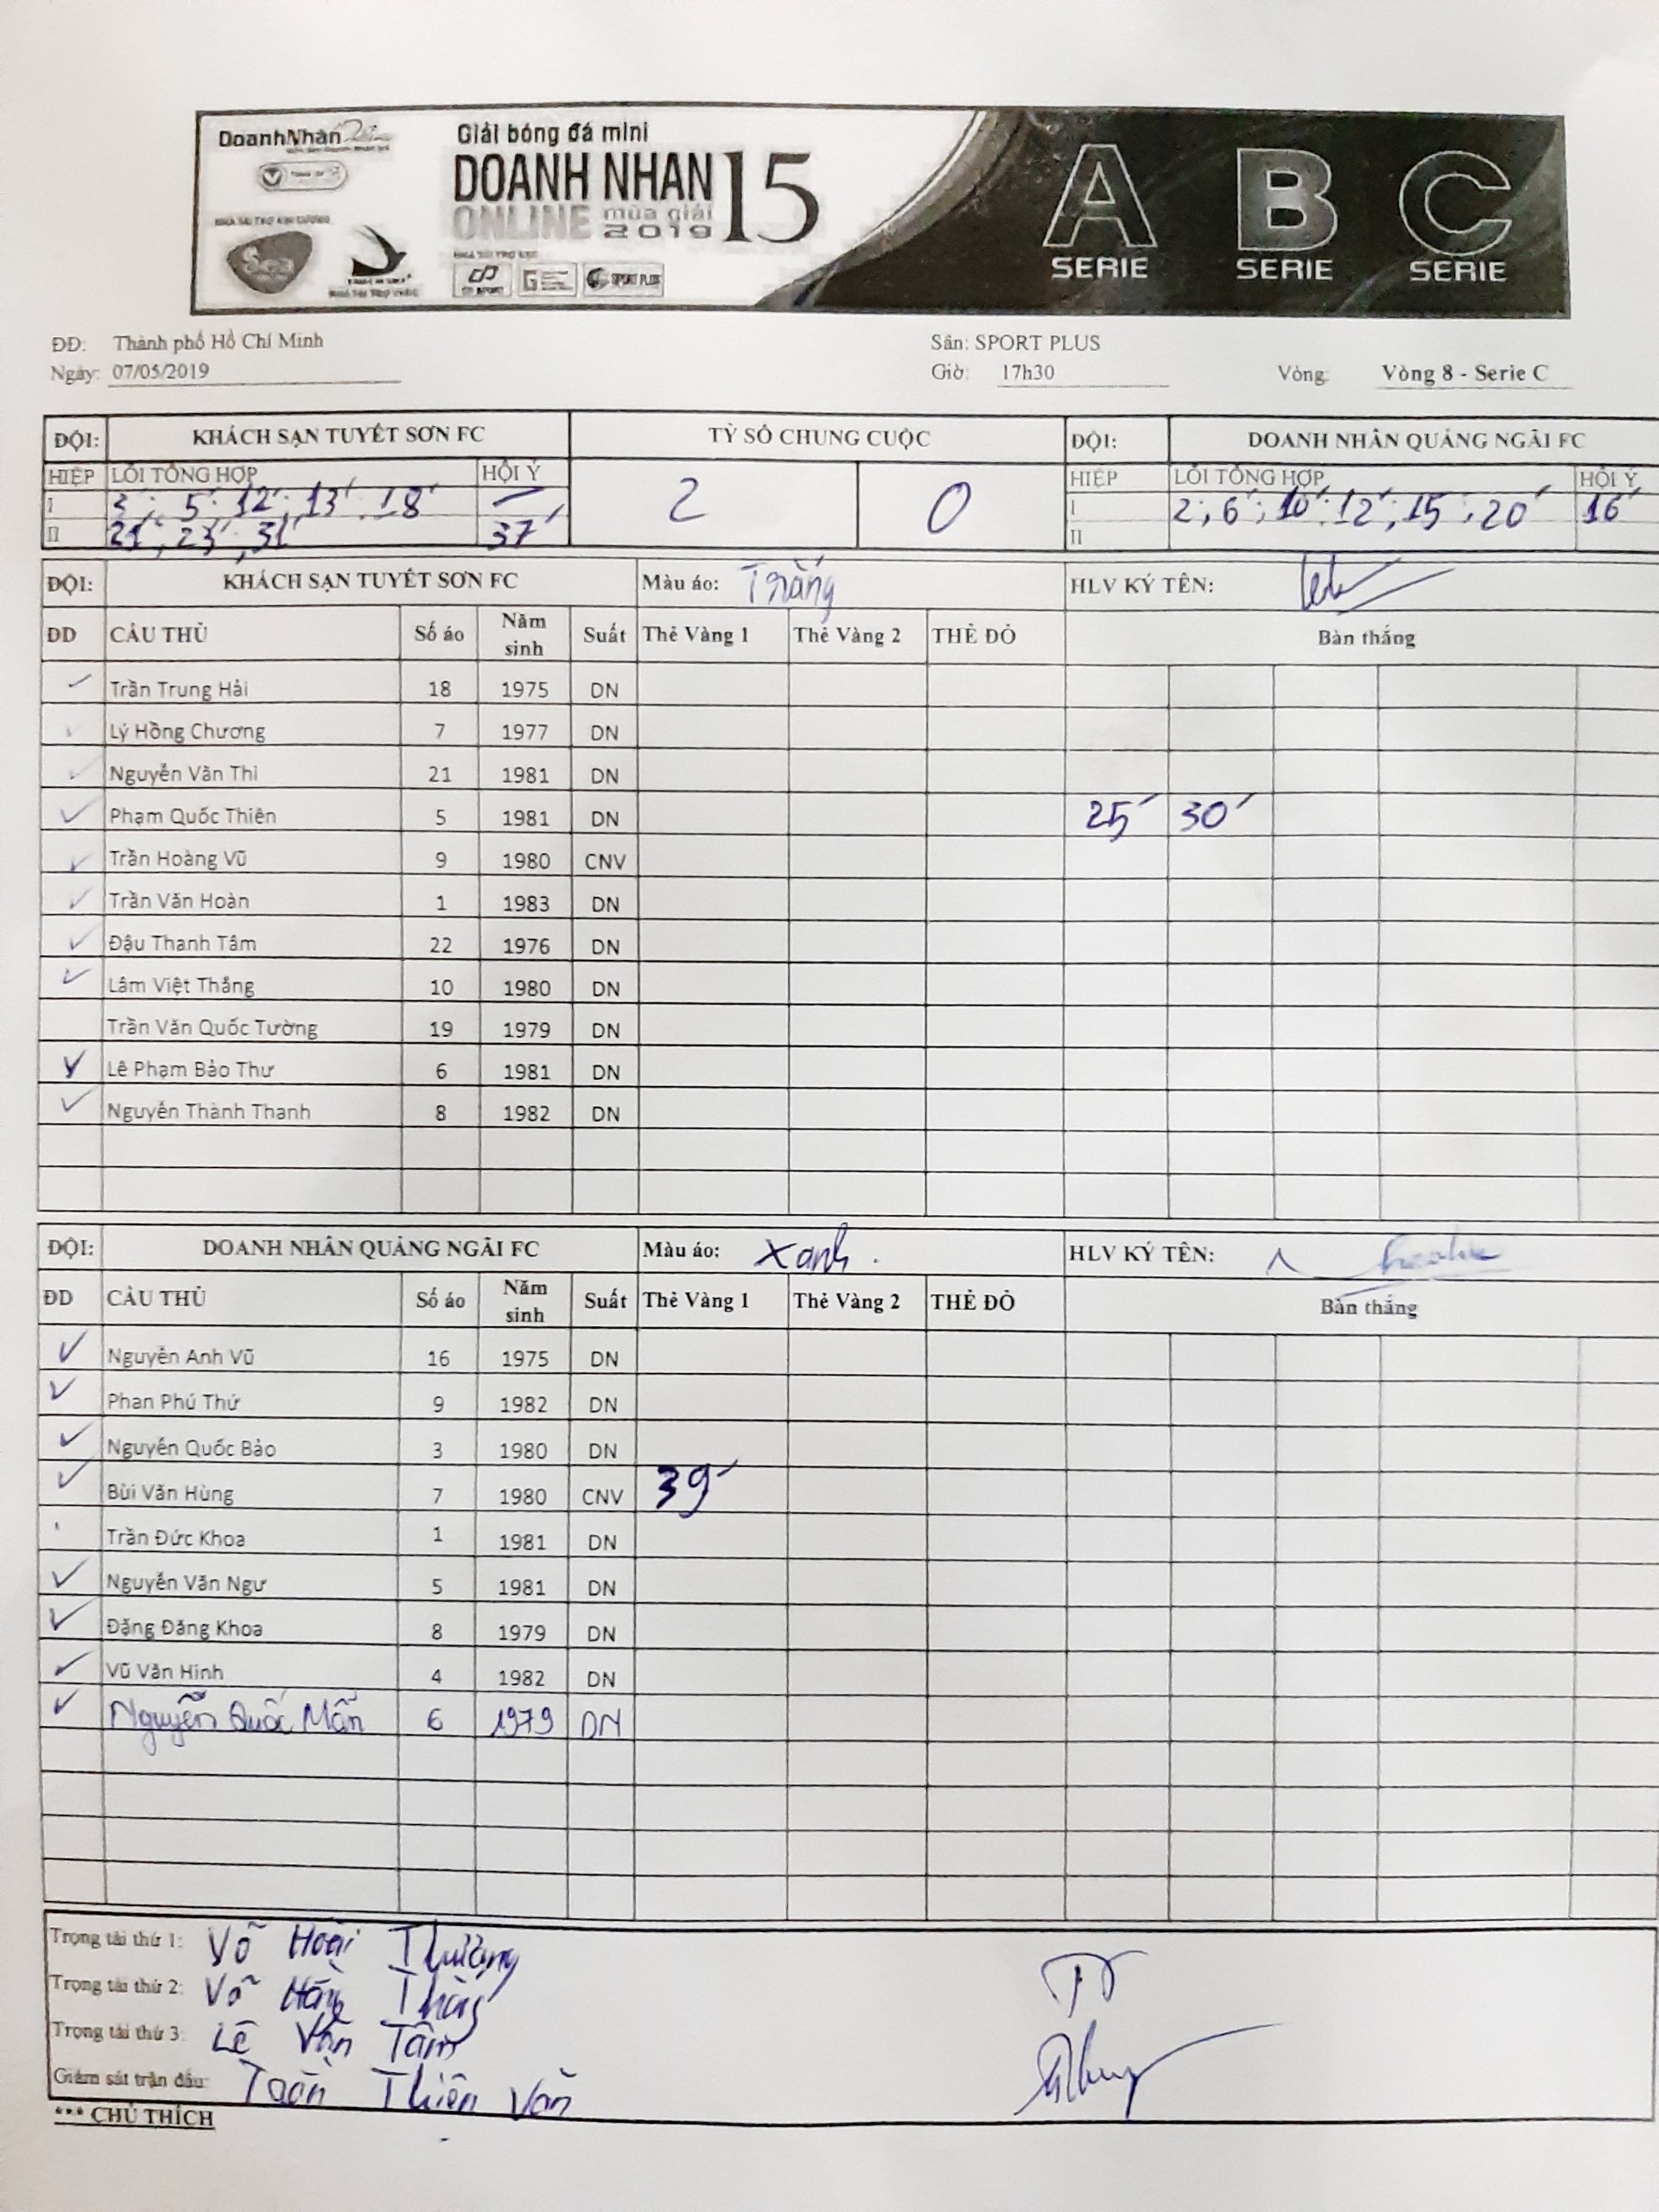 DoanhNhân
Giải bóng đá mini
DOANH NHAN 15
ONLINE mùa giải 2019
SPORT PLUS
A SERIE B SERIE C SERIE
ĐĐ: Thành phố Hồ Chí Minh Sân: SPORT PLUS
Ngày: 07/05/2019 Giờ: 17h30 Vòng: Vòng 8 - Serie C
ĐỘI: KHÁCH SẠN TUYẾT SƠN FC TỶ SỐ CHUNG CUỘC ĐỘI: DOANH NHÂN QUẢNG NGÃI FC
HIỆP LỖI TỔNG HỢP HỘI Ý 2 0 HIỆP LỖI TỔNG HỢP HỘI Ý
I 3'; 5'; 12'; 13'; 18' — I 2'; 6'; 10'; 12'; 15; 20' 16'
II 21'; 23'; 31' 37' II
ĐỘI: KHÁCH SẠN TUYẾT SƠN FC Màu áo: Trắng HLV KÝ TÊN:
ĐD CẦU THỦ Số áo Năm sinh Suất Thẻ Vàng 1 Thẻ Vàng 2 THẺ ĐỎ Bàn thắng
✓ Trần Trung Hải 18 1975 DN
✓ Lý Hồng Chương 7 1977 DN
✓ Nguyễn Văn Thi 21 1981 DN
✓ Phạm Quốc Thiên 5 1981 DN 25' 30'
✓ Trần Hoàng Vũ 9 1980 CNV
✓ Trần Văn Hoàn 1 1983 DN
✓ Đậu Thanh Tâm 22 1976 DN
✓ Lâm Việt Thắng 10 1980 DN
Trần Văn Quốc Tường 19 1979 DN
✓ Lê Phạm Bảo Thư 6 1981 DN
✓ Nguyễn Thành Thanh 8 1982 DN
ĐỘI: DOANH NHÂN QUẢNG NGÃI FC Màu áo: Xanh. HLV KÝ TÊN:
ĐD CẦU THỦ Số áo Năm sinh Suất Thẻ Vàng 1 Thẻ Vàng 2 THẺ ĐỎ Bàn thắng
✓ Nguyễn Anh Vũ 16 1975 DN
✓ Phan Phú Thứ 9 1982 DN
✓ Nguyễn Quốc Bảo 3 1980 DN
✓ Bùi Văn Hùng 7 1980 CNV 39'
Trần Đức Khoa 1 1981 DN
✓ Nguyễn Văn Ngư 5 1981 DN
✓ Đặng Đăng Khoa 8 1979 DN
✓ Vũ Văn Hinh 4 1982 DN
✓ Nguyễn Quốc Mẫn 6 1979 DN
Trọng tài thứ 1: Võ Hoài Thương
Trọng tài thứ 2: Võ
Trọng tài thứ 3: Lê Văn Tâm
Giám sát trận đấu: Thiên Văn
*** CHÚ THÍCH